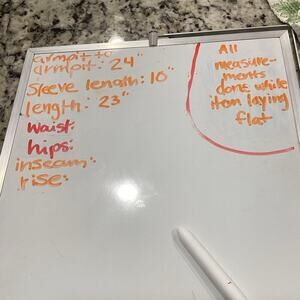 armpit to
armpit: 24"
Sleeve length: 10"
length: 23"
waist:
hips:
inseam:
rise:
All
measure-
ments
done while
item laying
flat